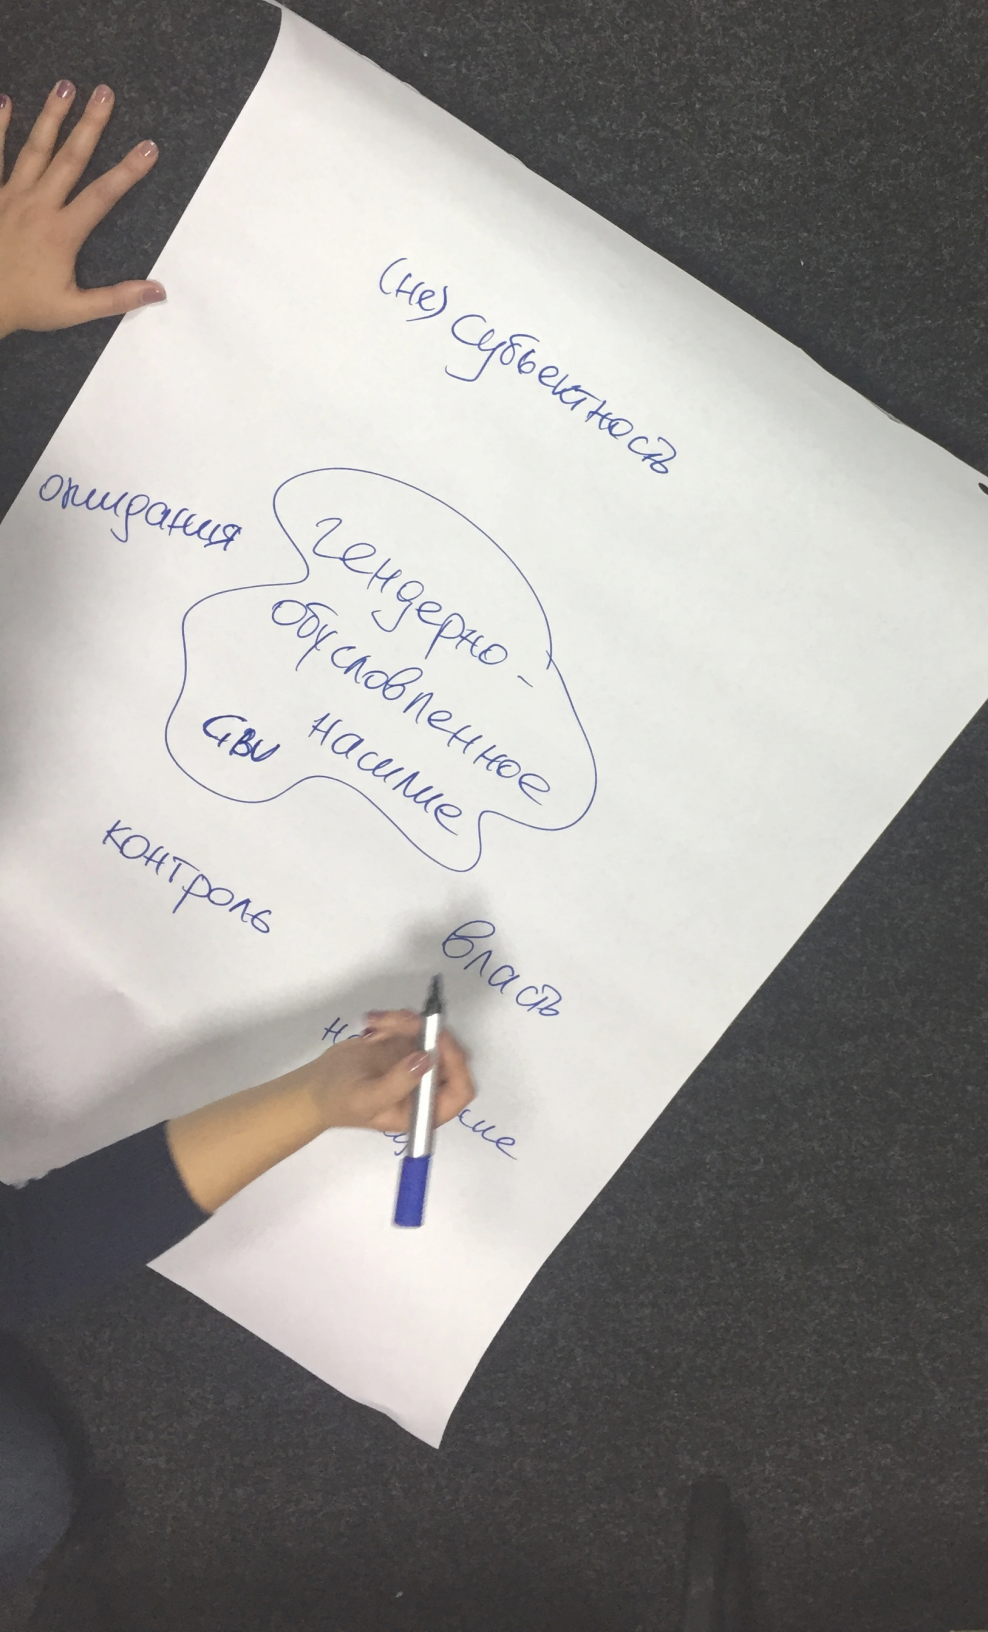 (не) субъектность
ожидания
гендерно-
обусловленное
GBV насилие
контроль
власть